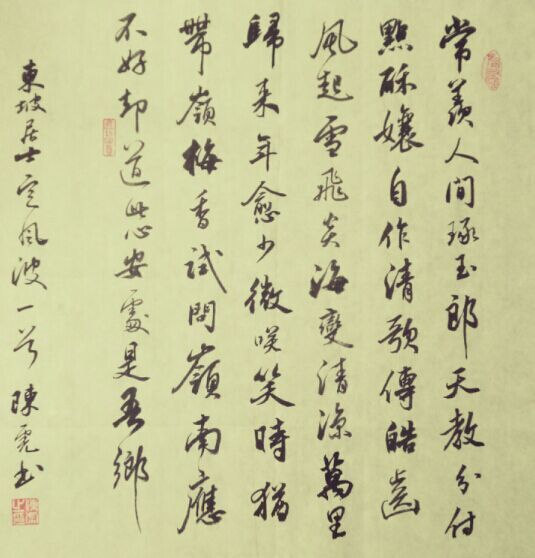 常羨人間琢玉郎天教分付
點酥孃自作清歌傳皓齒
風起雪飛炎海變清涼萬里
歸來年愈少微咲笑時猶
帶嶺梅香試問嶺南應
不好却道此心安處是吾鄉
東坡居士定風波一首 陳